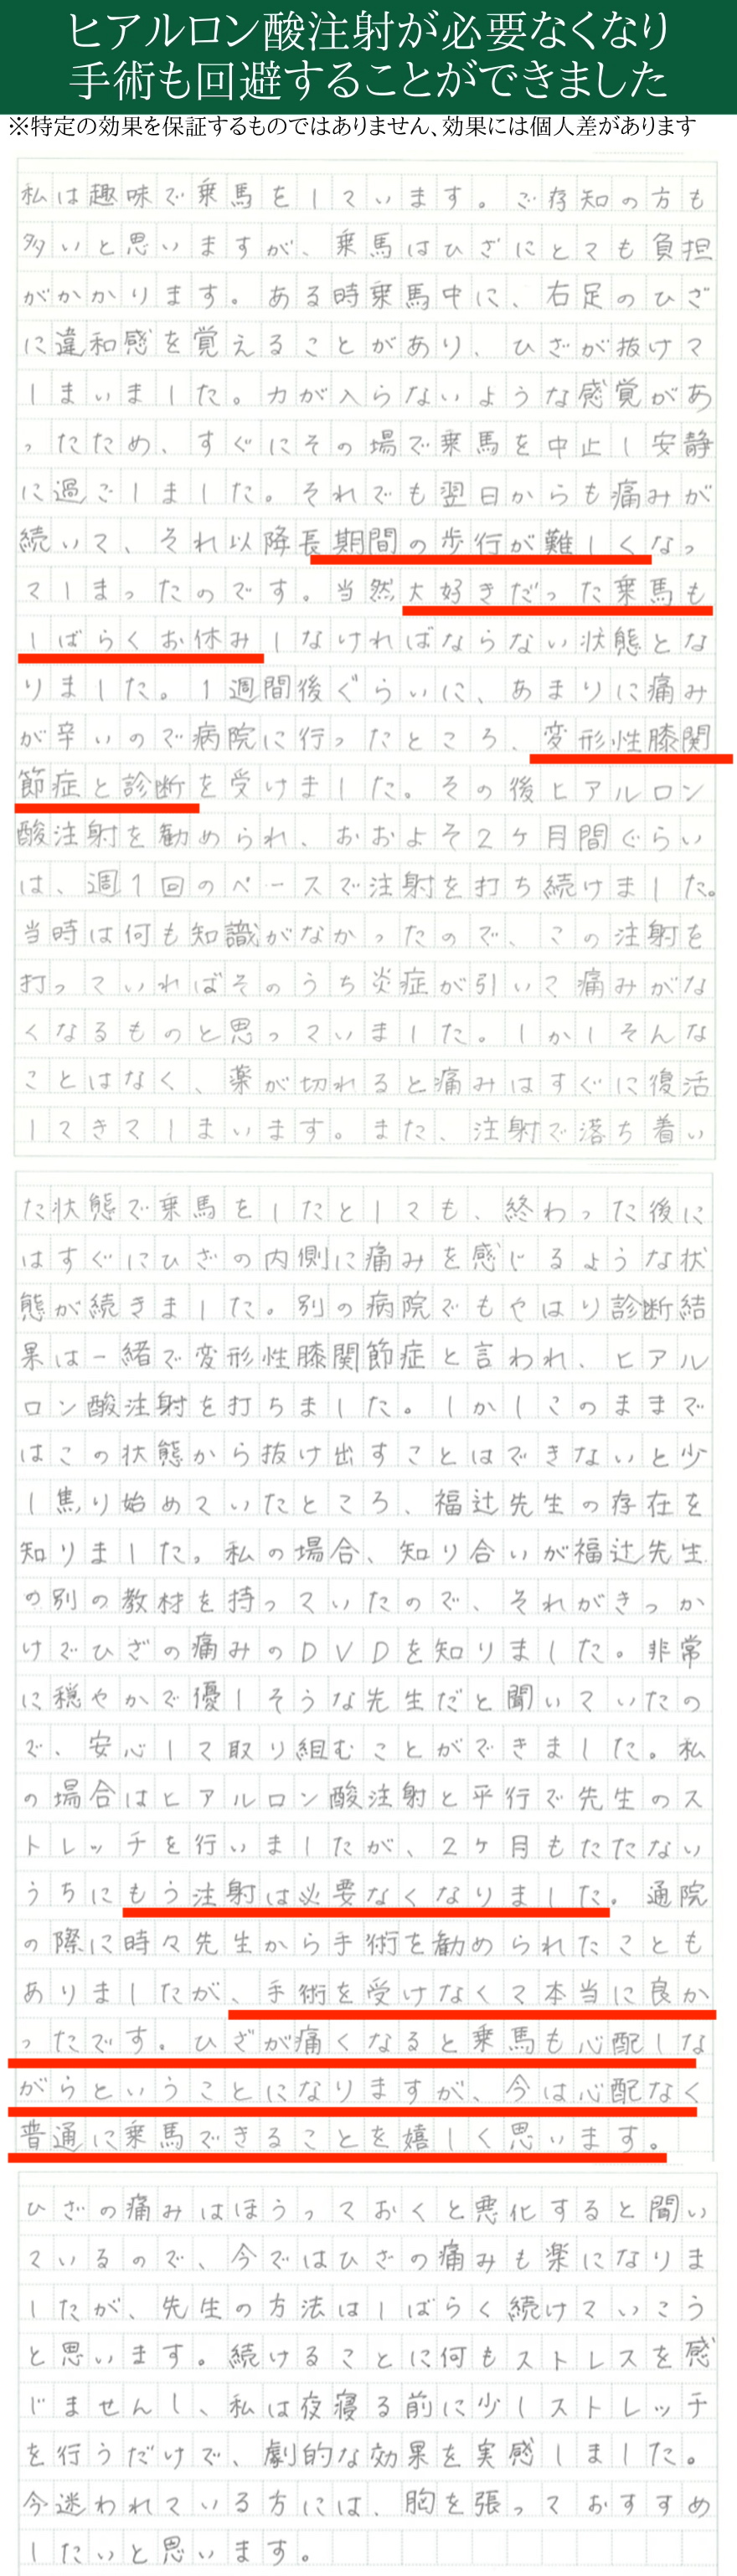 ヒアルロン酸注射が必要なくなり
手術も回避することができました
※特定の効果を保証するものではありません、効果には個人差があります
私は趣味で乗馬をしています。ご存知の方も
多いと思いますが、乗馬はひざにとても負担
がかかります。ある時乗馬中に、右足のひざ
に違和感を覚えることがあり、ひざが抜けて
しまいました。力が入らないような感覚があ
ったため、すぐにその場で乗馬を中止し安静
に過ごしました。それでも翌日からも痛みが
続いて、それ以降長期間の歩行が難しくなっ
てしまったのです。当然大好きだった乗馬も
しばらくお休みしなければならない状態とな
りました。1週間後ぐらいに、あまりに痛み
が辛いので病院に行ったところ、変形性膝関
節症と診断を受けました。その後ヒアルロン
酸注射を勧められ、おおよそ2ヶ月間ぐらい
は、週1回のペースで注射を打ち続けました。
当時は何も知識がなかったので、この注射を
打っていればそのうち炎症が引いて痛みがな
くなるものと思っていました。しかしそんな
ことはなく、薬が切れると痛みはすぐに復活
してきてしまいます。また、注射で落ち着い
た状態で乗馬をしたとしても、終わった後に
はすぐにひざの内側に痛みを感じるような状
態が続きました。別の病院でもやはり診断結
果は一緒で変形性膝関節症と言われ、ヒアル
ロン酸注射を打ちました。しかしこのままで
はこの状態から抜け出すことはできないと少
し焦り始めていたところ、福辻先生の存在を
知りました。私の場合、知り合いが福辻先生
の別の教材を持っていたので、それがきっか
けでひざの痛みのDVDを知りました。非常
に穏やかで優しそうな先生だと聞いていたの
で、安心して取り組むことができました。私
の場合はヒアルロン酸注射と平行で先生のス
トレッチを行いましたが、2ヶ月もたたない
うちにもう注射は必要なくなりました。通院
の際に時々先生から手術を勧められたことも
ありましたが、手術を受けなくて本当に良か
ったです。ひざが痛くなると乗馬も心配しな
がらということになりますが、今は心配なく
普通に乗馬できることを嬉しく思います。
ひざの痛みはほうっておくと悪化すると聞い
ているので、今ではひざの痛みも楽になりま
したが、先生の方法はしばらく続けていこう
と思います。続けることに何もストレスを感
じませんし、私は夜寝る前に少しストレッチ
を行うだけで、劇的な効果を実感しました。
今迷われている方には、胸を張っておすすめ
したいと思います。